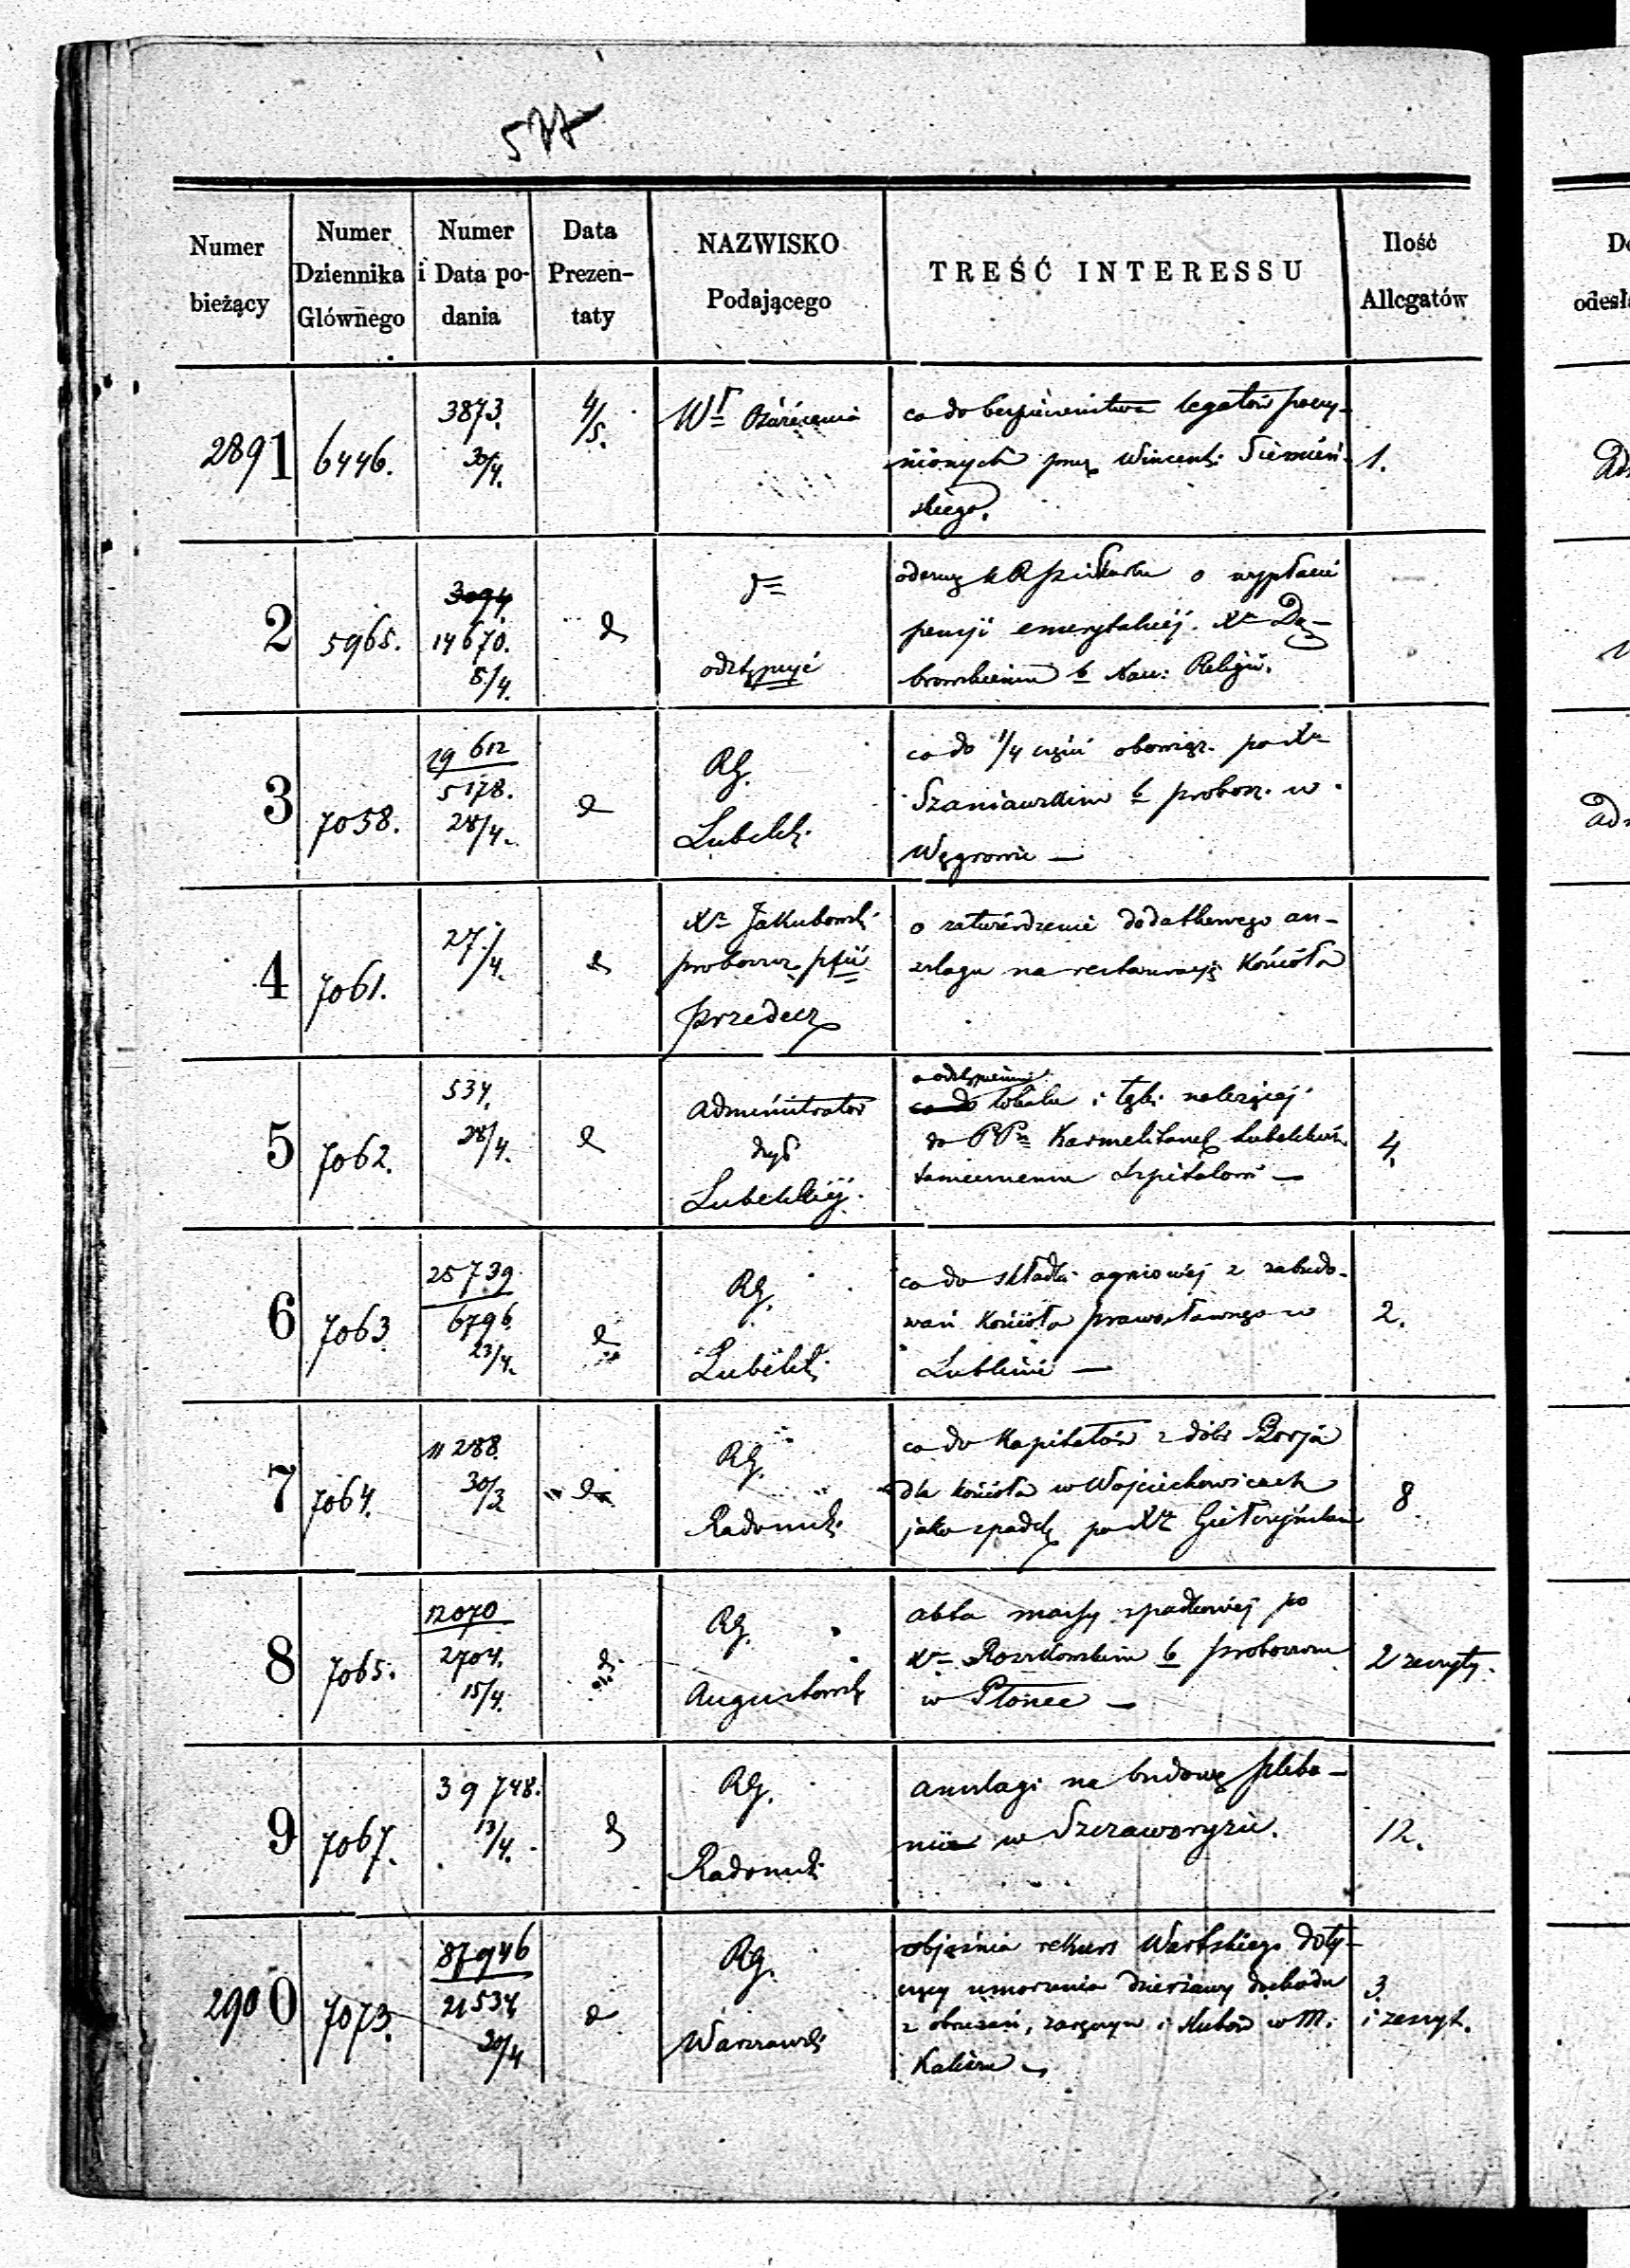 577
Numer bieżący
Numer Dziennika Głównego
Numer i Data podania
Data Prezentaty
NAZWISKO Podającego
TREŚĆ INTERESSU
Ilość Allegatów
2891
6446.
3873.
30/4.
4/5.
co do bezpieczeństwa legatów poczy-
nionych przez Wincent. Siemień-
skiego.
1.
2
5965.
3094
14670.
8/4.
odstąpić
o wypłacie
pensji emerytalnej. Xu Dą-
browskiemu b Nau: Religii.
3
7058.
19 612
5178.
28/4.
RG.
Lubelski
co do 1/4 części obowiąz. po Xu
Szaniawskim b probosz. w
Węgrowie —
4
7061.
27/4.
X Jakubowski
proboszcz pfii
Przedecz
o zatwierdzenie dodatkowego an-
szlagu na restauracją Kościoła
5
7062.
534.
28/4.
Administrator
dyec
Lubelskiej.
o odstąpieniu
co do lokalu i należącej
do PP Karmelitanek Lubelskich
tamecznemu Szpitalowi —
4.
6
7063
25739
6796.
23/4.
RG.
Lubelski
co do składki ogniowej z zabudo-
wań Kościoła prawosławnego w
Lublinie —
2.
7
7064.
11288.
30/3
RG.
Radomski
co do Kapitałów z dóbr Borja
dla kościoła w Wojciechowicach
jako spadek po Xu
8
8
7065.
12070
2704.
15/4.
RG.
Augustowski
akta massy spadkowej po
Xu Roszkowskim b proboszczu
w Płonce —
2 zeszyty.
9
7067.
39748.
13/4.
RG.
Radomski
anszlagi na budowę pleba-
nii w Szczaworyżu.
12.
2900
7073.
87946
21534
30/4
RG.
Warszawski
objaśnia rekurs Wartskiego doty-
czący umorzenia dzierżawy dochodu
z obrzezań, zaręczyn i ślubów w M.
Kaliszu —
3
i zeszyt.